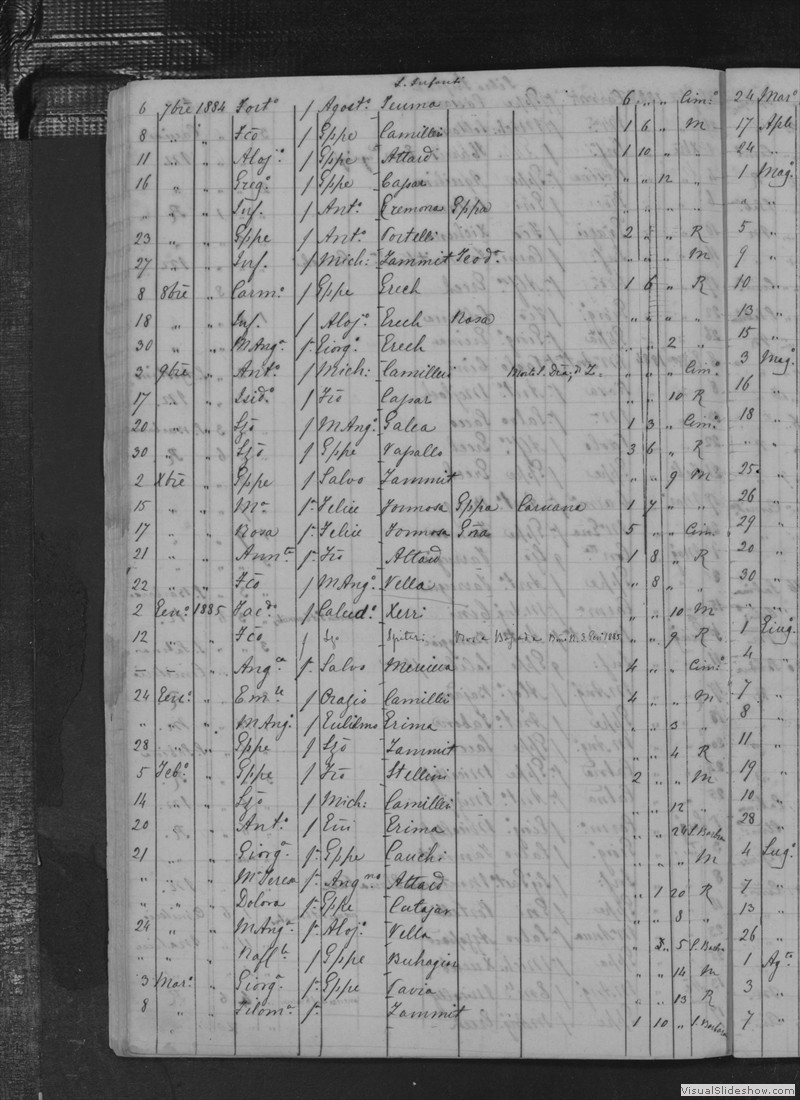 S. Infanti
6 7bre 1884 Fort.o f Agost.o Teuma 6 " " Cim.o 24 Mar.o
8 " " Fco f Gppe Camilleri 1 6 " M 17 Aple
11 " " Aloj.o f Gppe Attard 1 10 " " 24 "
16 " " Greg.o f Gppe Capar " " 12 " 1 Mag.o
" " " Inf. f Ant.o Cremona Gppa " " " " " "
23 " " Gppe f Ant.o Portelli 2 " " R 5 "
27 " " Inf. f Mich: Zammit Teod.a " " " M 9 "
8 8bre " Carm.o f Gppe Grech 1 6 " R 10 "
18 " " Inf. f Aloj.o Grech Rosa " " " " 13 "
30 " " M Ang.a f. Giorg.o Grech " " 2 " 15 "
3 9bre " Ant.o f Mich: Camilleri " " " Cim.o 3 Mag.o
17 " " Isid.o f Fco Capar " " 10 R 16 "
20 " " Sjo f M Ang.o Galea 1 3 " Cim.o 18 "
30 " " Sjo f Gppe Vapallo 3 6 " R " "
2 Xbre " Gppe f Salvo Zammit " " 9 M 25 "
15 " " M.a f. Felice Formosa Gppa Caruana 1 7 " " 26 "
17 " " Rosa f. Felice Formosa 5 " " Cim. 29 "
21 " " Annta f. Fco Attard 1 8 " R 20 "
22 " " Fco f M Ang.o Vella " 8 " " 30 "
2 Gen.o 1885 f Calced.o Xerri " " 10 M " "
12 " " Fco f Sjo Spiteri " " 9 R 1 Giug.o
– – " Ang.ca f. Salvo Mercieca 4 " " Cim.o 4 "
24 Gen.o " Em.le f Orazio Camilleri 4 " " M 7 "
" " " M Ang.o f Gulielmo Grima " " 3 " 8 "
28 " " Gppe f Sjo Zammit " " 4 R 11 "
5 Feb.o " Gppe f Fco Stellini 2 " " M 19 "
14 " " Sjo f Mich: Camilleri " " 12 " 10 "
20 " " Ant.o f Grima " " 24 28 "
21 " " Giorg.a f. Gppe Cauchi " " " M 4 Lug.o
" " " M.a Teresa f. Attard " 1 20 R 7 "
" " " Dolora f. Gppe Cutajar " " 8 " 13 "
24 " " M Ang.a f. Aloj.o Vella " 5 26 "
" " " f Gppe Buhagiar " " 14 M 1 Ag.o
3 Mar.o " Giorg.a f. Gppe Pavia " " 13 R 3 "
8 " " Filom.a f. Zammit 1 10 " 7 "
VisualSlideshow.com